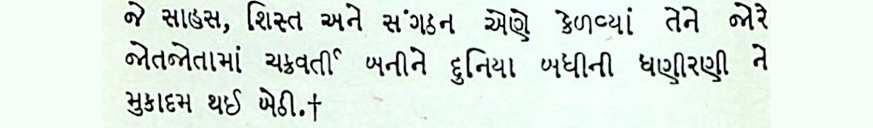 જે સાહસ, શિસ્ત અને સંગઠન એણે કેળવ્યાં તેને જોરે
જોતજોતામાં ચક્રવર્તી બનીને દુનિયા બધીની ધણીરણી ને
મુકાદમ થઈ બેઠી.†